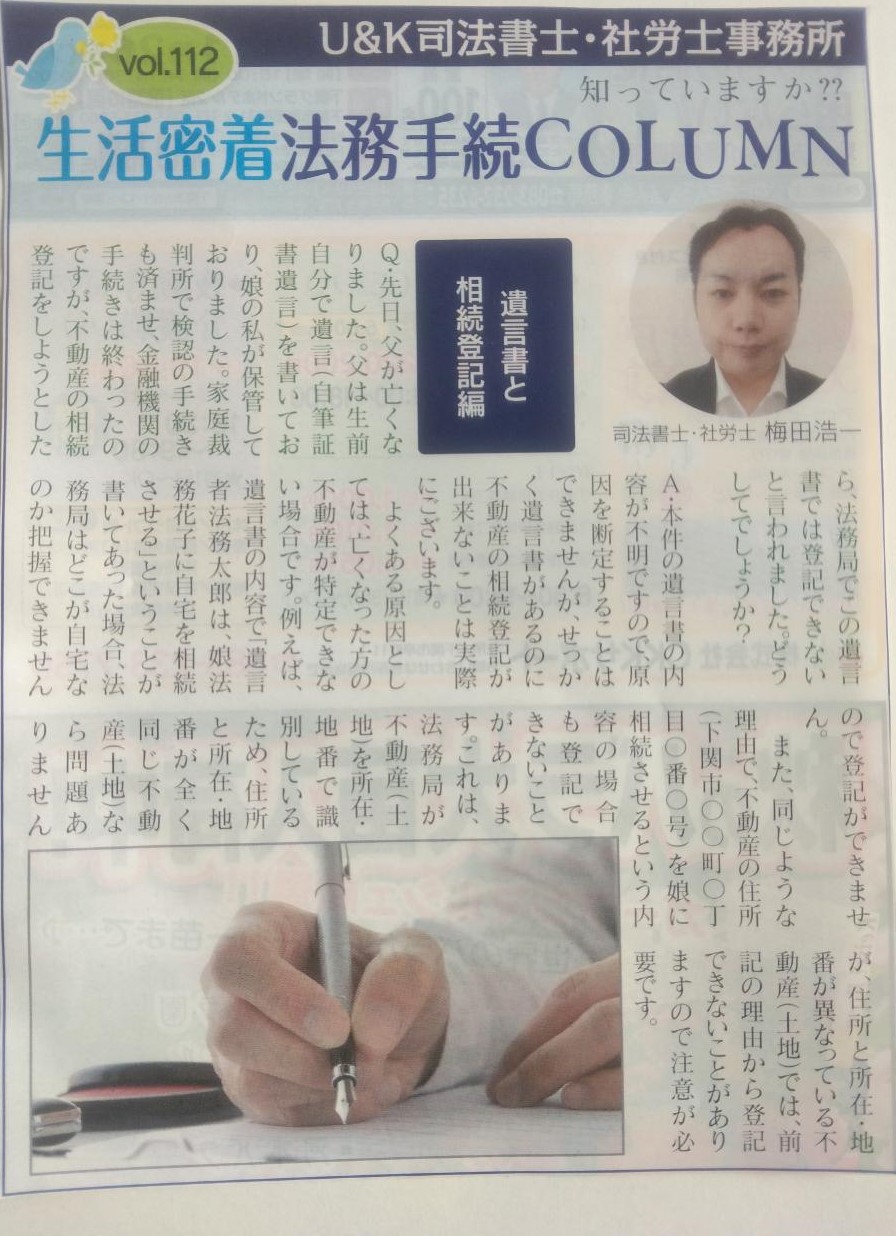 U&K司法書士・社労士事務所
vol.112
知っていますか??
生活密着法務手続COLUMN
司法書士・社労士 梅田浩一
遺言書と
相続登記編
Q・先日、父が亡くな
りました。父は生前
自分で遺言(自筆証
書遺言)を書いてお
り、娘の私が保管して
おりました。家庭裁
判所で検認の手続き
も済ませ、金融機関の
手続きは終わったの
ですが、不動産の相続
登記をしようとした
ら、法務局でこの遺言
書では登記できない
と言われました。どう
してでしょうか?
A・本件の遺言書の内
容が不明ですので、原
因を断定することは
できませんが、せっか
く遺言書があるのに
不動産の相続登記が
出来ないことは実際
にございます。
よくある原因とし
ては、亡くなった方の
不動産が特定できな
い場合です。例えば、
遺言書の内容で「遺言
者法務太郎は、娘法
務花子に自宅を相続
させる」ということが
書いてあった場合、法
務局はどこが自宅な
のか把握できません
ので登記ができませ
ん。
また、同じような
理由で、不動産の住所
(下関市〇〇町〇丁
目〇番〇号)を娘に
相続させるという内
容の場合
も登記で
きないこと
がありま
す。これは、
法務局が
不動産(土
地)を所在・
地番で識
別している
ため、住所
と所在・地
番が全く
同じ不動
産(土地)な
ら問題あ
りません
が、住所と所在・地
番が異なっている不
動産(土地)では、前
記の理由から登記
できないことがあり
ますので注意が必
要です。